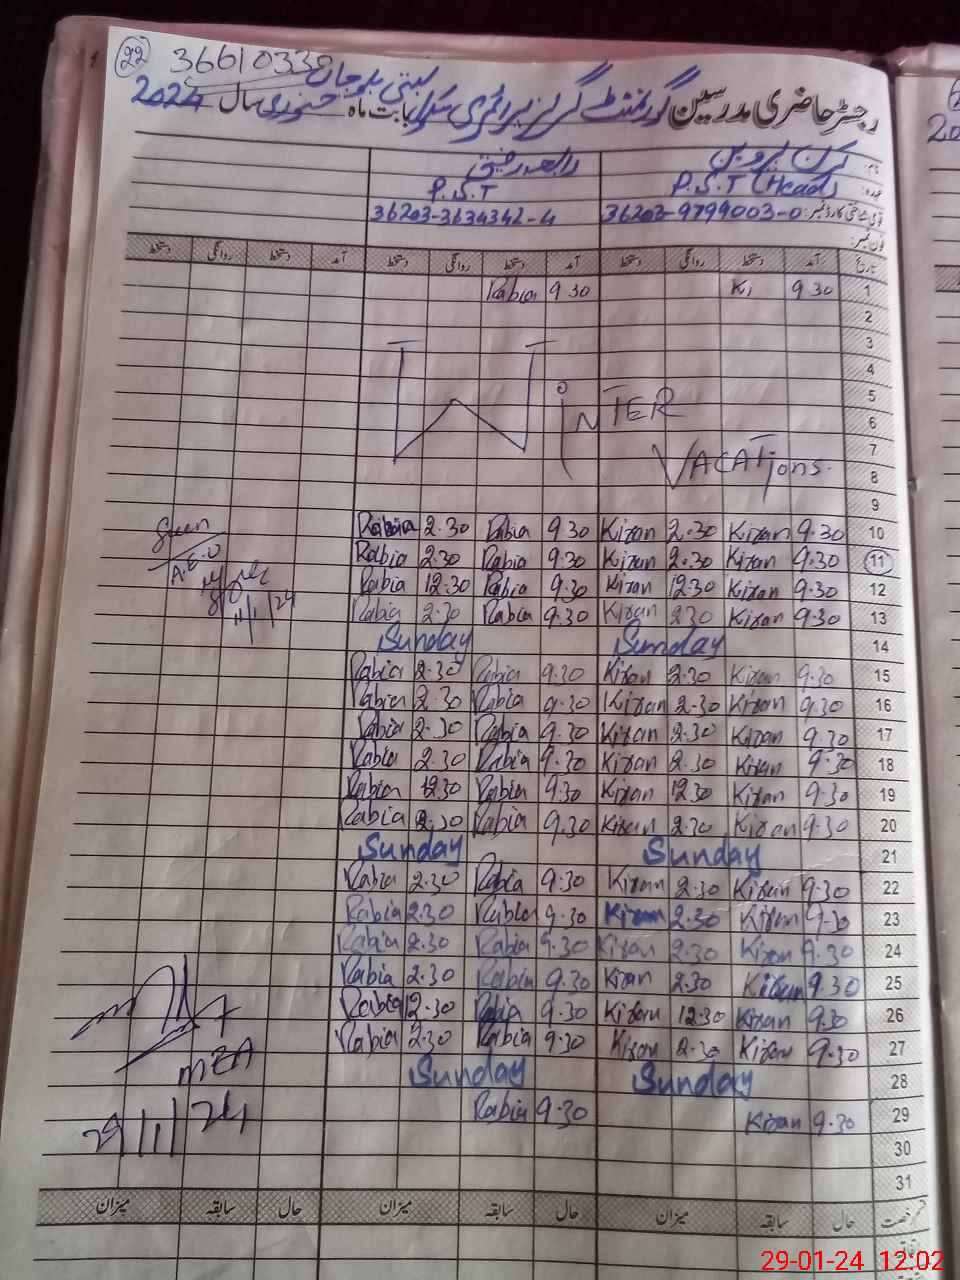 22 36610338
رجسٹر حاضری مدرسین گورنمنٹ گرلز پرائمری سکول بستی بابت ماہ جنوری سال 2024
نام: کرن پروین رابعہ رفیق
عہدہ: P.S.T (Head) P.S.T
قومی شناختی کارڈ نمبر: 36203-9799003-0 36203-3634342-4
فون نمبر:
تاریخ آمد دستخط روانگی دستخط آمد دستخط روانگی دستخط آمد دستخط روانگی دستخط
Rabia 9.30 Ki 9.30 1
2
3
4
5
WiNTER 6
VACATions. 7
8
9
Seen Rabia 2.30 Rabia 9.30 Kiran 2.30 Kiran 9.30 10
A.E.O Rabia 2.30 Rabia 9.30 Kiran 2.30 Kiran 9.30 11
Rabia 12.30 Rabia 9.30 Kiran 12.30 Kiran 9.30 12
11/1/24 Rabia 2.30 Rabia 9.30 Kiran 2.30 Kiran 9.30 13
Sunday Sunday 14
Rabia 2.30 Rabia 9.30 Kiran 2.30 Kiran 9.30 15
Rabia 2.30 Rabia 9.30 Kiran 2.30 Kiran 9.30 16
Rabia 2.30 Rabia 9.30 Kiran 2.30 Kiran 9.30 17
Rabia 2.30 Rabia 9.30 Kiran 2.30 Kiran 9.30 18
Rabia 12.30 Rabia 9.30 Kiran 12.30 Kiran 9.30 19
Rabia 2.30 Rabia 9.30 Kiran 2.30 Kiran 9.30 20
Sunday Sunday 21
Rabia 2.30 Rabia 9.30 Kiran 2.30 Kiran 9.30 22
Rabia 2.30 Rabia 9.30 Kiran 2.30 Kiran 9.30 23
Rabia 2.30 Rabia 9.30 Kiran 2.30 Kiran 9.30 24
Rabia 2.30 Rabia 9.30 Kiran 2.30 Kiran 9.30 25
Rabia 12.30 Rabia 9.30 Kiran 12.30 Kiran 9.30 26
Rabia 2.30 Rabia 9.30 Kiran 2.30 Kiran 9.30 27
MEA Sunday Sunday 28
29/1/24 Rabia 9.30 Kiran 9.30 29
30
31
قسم رخصت حال سابقہ میزان حال سابقہ میزان حال سابقہ میزان
29-01-24 12:02